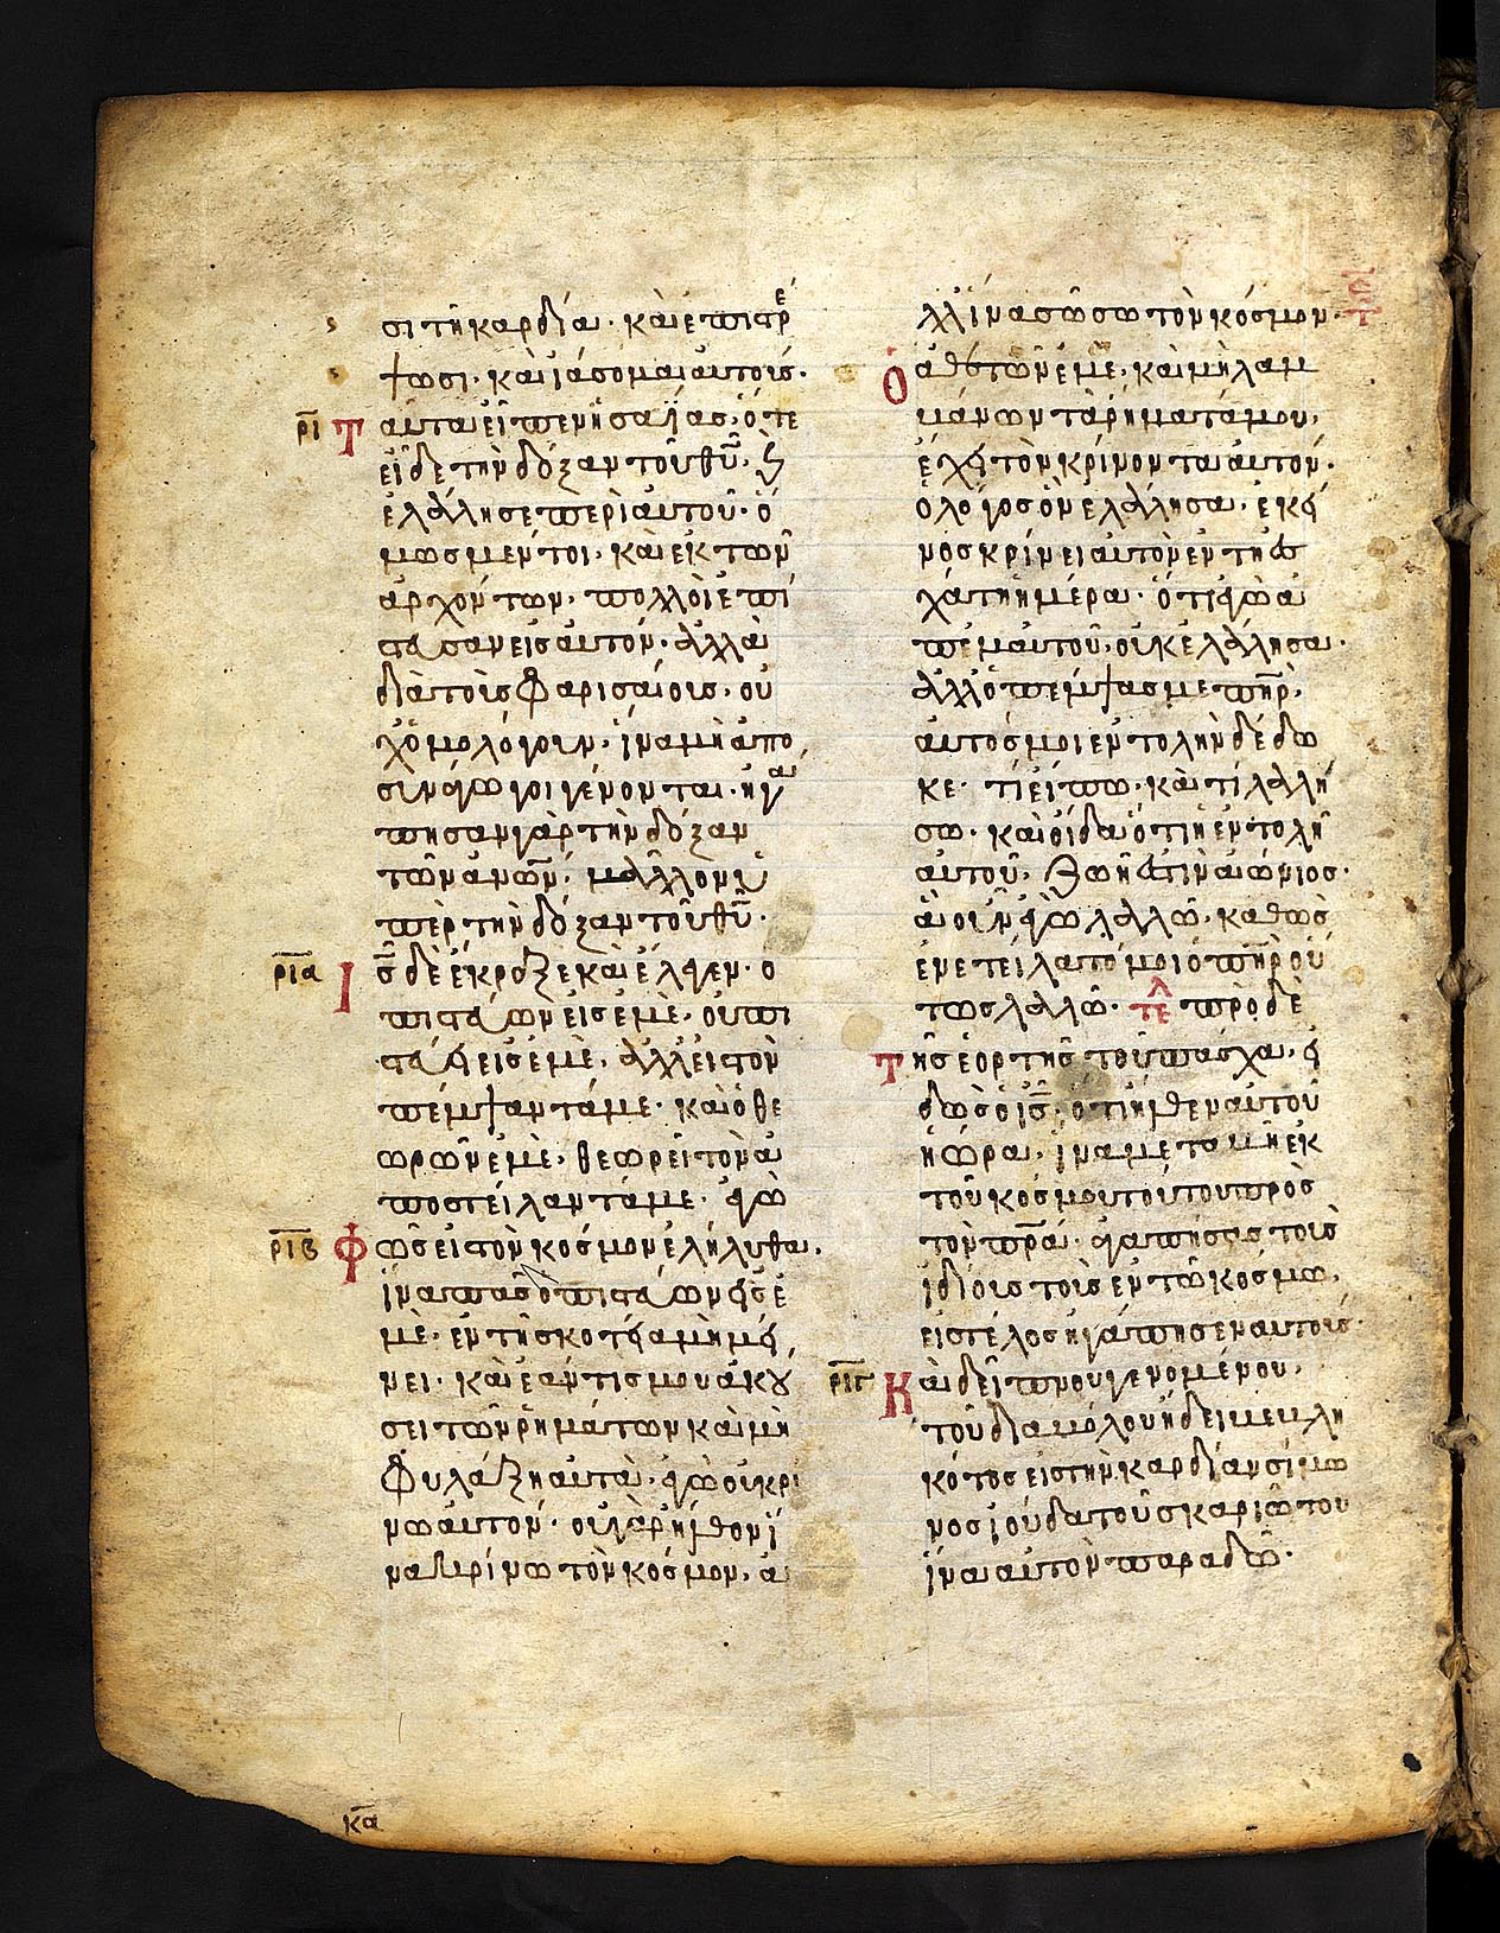 σι τῆ καρδία· καὶ ἐπιστρέ
ψωσι· καὶ ἰάσομαι αὐτοῖς·
ρι Ταῦτα εἶπεν ἡσαΐας, ὅτε
εἶδε τὴν δόξαν τοῦ θῦ· ϗ
ἐλάλησε περὶ αὐτοῦ· ὅ
μως μέντοι· καὶ ἐκ τῶν
ἀρχόντων, πολλοὶ ἐπί
στευσαν εἰς αὐτόν· ἀλλὰ
διὰ τοὺς φαρισαίους, οὐ
χ ὁμολόγουν, ἵνα μὴ ἀπο
συνάγωγοι γένονται· ἠγά
πησαν γὰρ τὴν δόξαν
τῶν ἀνων, μᾶλλον ὑ
πὲρ τὴν δόξαν τοῦ θῦ·
ρια Ις δὲ ἔκραξε καὶ ἔλεγεν· ὁ
πιστεύων εἰς ἐμὲ, οὐ πι
στεύει εἰς ἐμὲ, ἀλλ εἰς τὸν
πέμψαντά με· καὶ ὁ θε
ωρῶν ἐμὲ, θεωρεῖ τὸν ἀ
ποστείλαντά με· ἐγὼ
ριβ Φῶς εἰς τὸν κόσμον ἐλήλυθα,
ἵνα πᾶς ὁ πιστεύων εἰς ἐ
μὲ, ἐν τῆ σκοτεία μὴ μεί
νει· καὶ ἐάν τις μου ἀκού
σει τῶν ῥημάτων καὶ μὴ
φυλάξη αὐτὰ, ἐγὼ οὐ κρί
νω αὐτόν· οὐ γὰρ ἦλθον ἵ
να κρίνω τὸν κόσμον, ἀ
λλ ἵνα σώσω τὸν κόσμον·
Ὁ ἀθετῶν ἐμὲ, καὶ μὴ λαμ
βάνων τὰ ῥήματά μου,
ἔχει τὸν κρίνοντα αὐτόν·
ὁ λόγος ὃν ἐλάλησα, ἐκεῖ
νος κρίνει αὐτὸν ἐν τῆ ἐσ
χάτη ἡμέρα· ὅτι ἐγὼ ἀ
π ἐμαυτοῦ, οὐκ ἐλάλησα·
ἀλλ ὁ πέμψας με πηρ,
αὐτός μοι ἐντολὴν δέδω
κε· τί εἴπω, καὶ τί λαλή
σω· καὶ οἶδα ὅτι ἡ ἐντολὴ
αὐτοῦ, ζωή ἐστιν αἰώνιος·
ἃ οὖν ἐγὼ λαλῶ, καθὼς
ἐνετείλατό μοι ὁ πηρ οὕ
τως λαλῶ· τε πρὸ δὲ
Τῆς ἑορτῆς τοῦ πάσχα, εἰ
δὼς ὁ ις, ὅτι ἦλθεν αὐτοῦ
ἡ ὥρα, ἵνα μεταβῆ ἐκ
τοῦ κόσμου τούτου πρὸς
τὸν πρα, ἀγαπήσας τοὺς
ἰδίους τοὺς ἐν τῶ κόσμω,
εἰς τέλος ἠγάπησεν αὐτούς·
ριγ Καὶ δείπνου γενομένου,
τοῦ διαβόλου ἤδει βεβλη
κότος εἰς τὴν καρδίαν σίμω
νος ἰούδα τοῦ σκαριώτου
ἵνα αὐτὸν παραδῶ·
κα